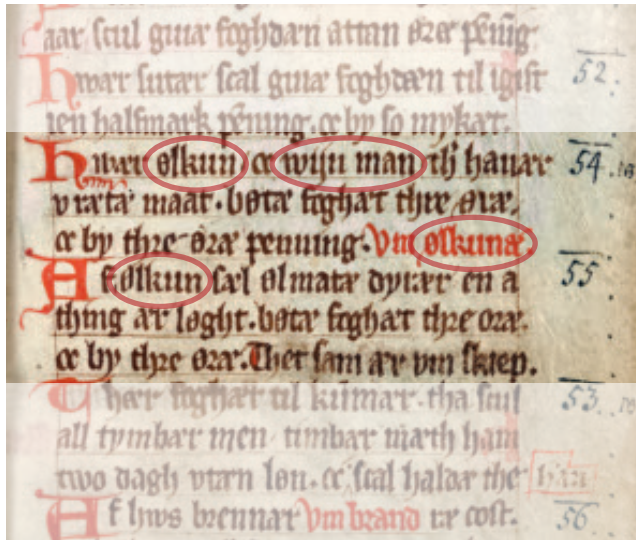 aar scul giuæ foghdæn attan øræ pęnīg
Hwær sutær scal giuæ foghdæn til igift 52.
ien halfmark pęning. oc by so mykæt.
Hwær ølkun oc wijn man th hauær 54.
vrætæ maat. bøtæ foghæt thre øræ.
oc by thre øræ penning. Vm ølkunæ.
Æf ølkun sæl ølmatæ dyrær en a 55
thing ær løght. bøtæ foghæt thre øræ.
oc by thre øræ. Thet sam ær vm skiep.
Thær foghæt til kumær. tha scul 53.
all tymbær men timbær mæth ham
two dagh vtæn løn. oc scal haldæ the
Æf hws brennær Vm brand ær cost. 56